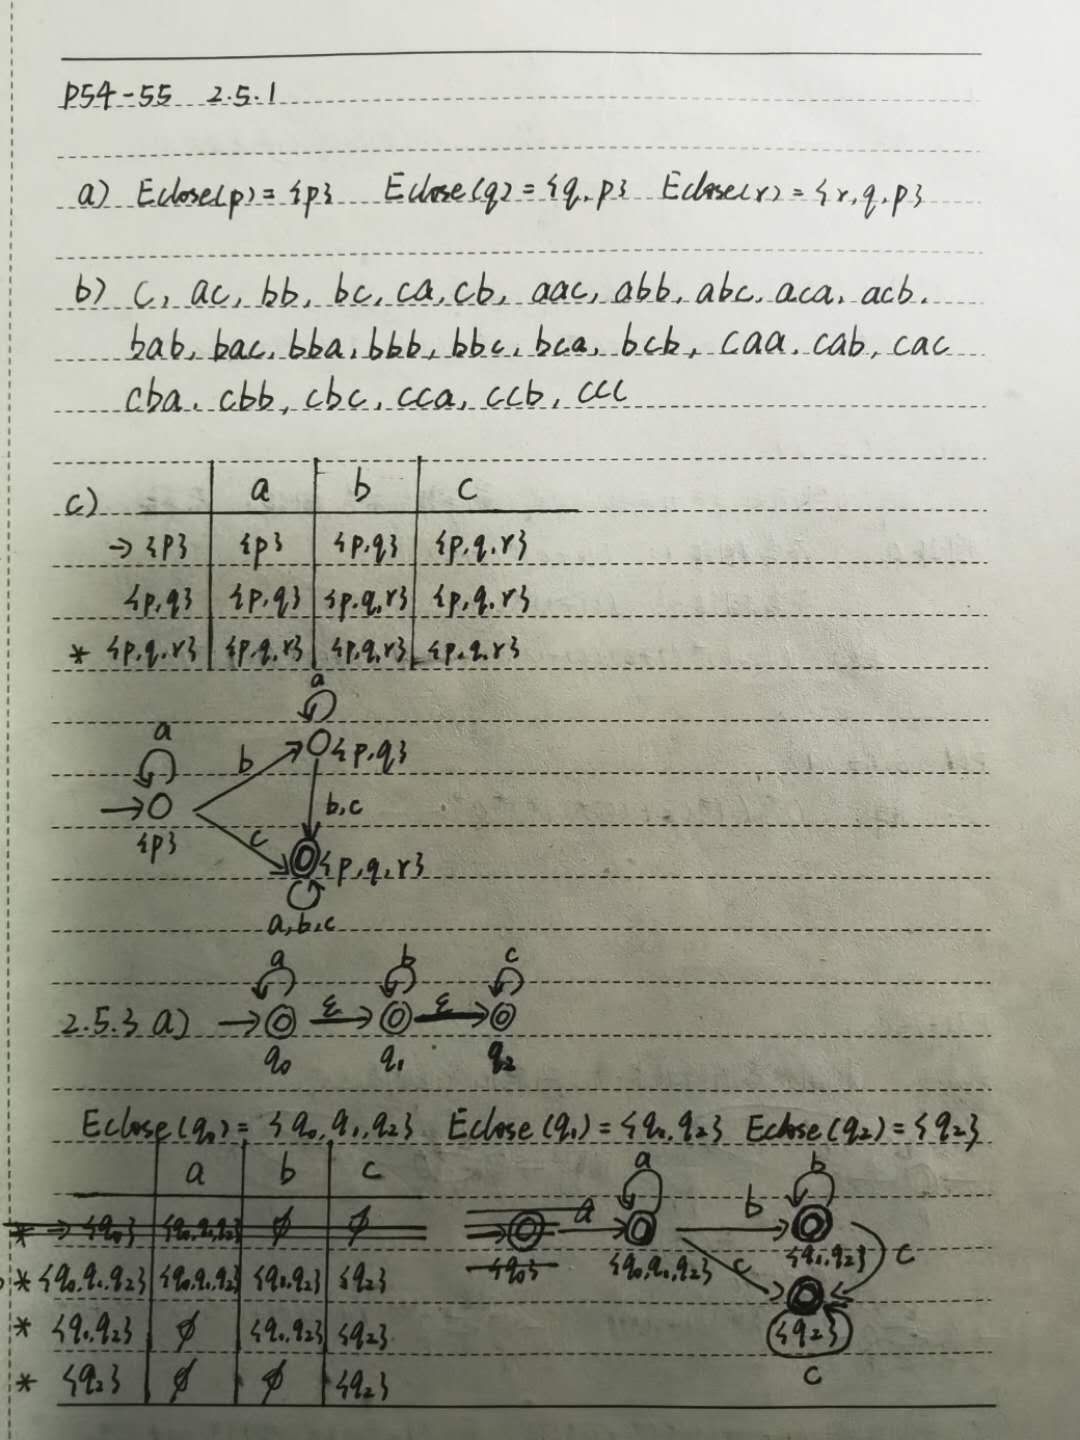 P54-55 2.5.1
a) Eclose(p)={p} Eclose(q)={q,p} Eclose(r)={r,q,p}
b) c, ac, bb, bc, ca, cb, aac, abb, abc, aca, acb,
bab, bac, bba, bbb, bbc, bca, bcb, caa, cab, cac
cba, cbb, cbc, cca, ccb, ccc
c) a b c
→ {p} {p} {p,q} {p,q,r}
{p,q} {p,q} {p,q,r} {p,q,r}
* {p,q,r} {p,q,r} {p,q,r} {p,q,r}
a
a
b {p,q}
b,c
{p}
c
{p,q,r}
a,b,c
a b c
2.5.3 a) → ε ε
q₀ q₁ q₂
Eclose(q₀)= {q₀,q₁,q₂} Eclose(q₁)={q₁,q₂} Eclose(q₂)={q₂}
a b c
* → {q₀} {q₀,q₁,q₂} ∅ ∅
* {q₀,q₁,q₂} {q₀,q₁,q₂} {q₁,q₂} {q₂}
* {q₁,q₂} ∅ {q₁,q₂} {q₂}
* {q₂} ∅ ∅ {q₂}
a b
a b
{q₀} {q₀,q₁,q₂} {q₁,q₂} c
c
{q₂}
c